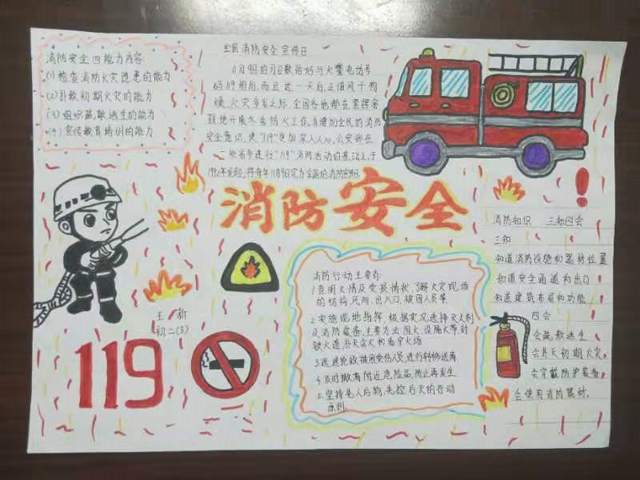 消防安全四能力内容
(1)检查消防火灾隐患的能力
(2)扑救初期火灾的能力
(3)组织疏散逃生的能力
(4)宣传教育培训的能力
全国消防安全宣传日
11月9日的月日数恰好与火警电话号
码119相同,而且这一天前后,正值风干物
燥、火灾多发之际,全国各地都在紧锣密
鼓地开展冬季防火工作,为增加全民的消防
安全意识,使"119"更加深入人心,公安部在
一些省市进行"119"消防活动的基础上,于
1992年发起,将每年11月9日定为全国的消防宣传日
消防安全
消防知识 三知四会
三知
知道消防设施和器材位置
知道安全通道和出口
知道建筑布局和功能
四会
会疏散逃生
会扑灭初期火灾
会穿戴防护装备
会使用消防器材
消防行动主要有
1.查明火情及发展情状,了解火灾现场
的结构,风向,出入口,被困人员等
2.实施现地指挥,根据实况选择灭火剂
3.迅速抢救被困受伤人员进行转移送离
4.及时撤离附近危险品,防止再发生
5.坚持先人后物,先控后灭的行动
原则
王 新
初二(3)
119